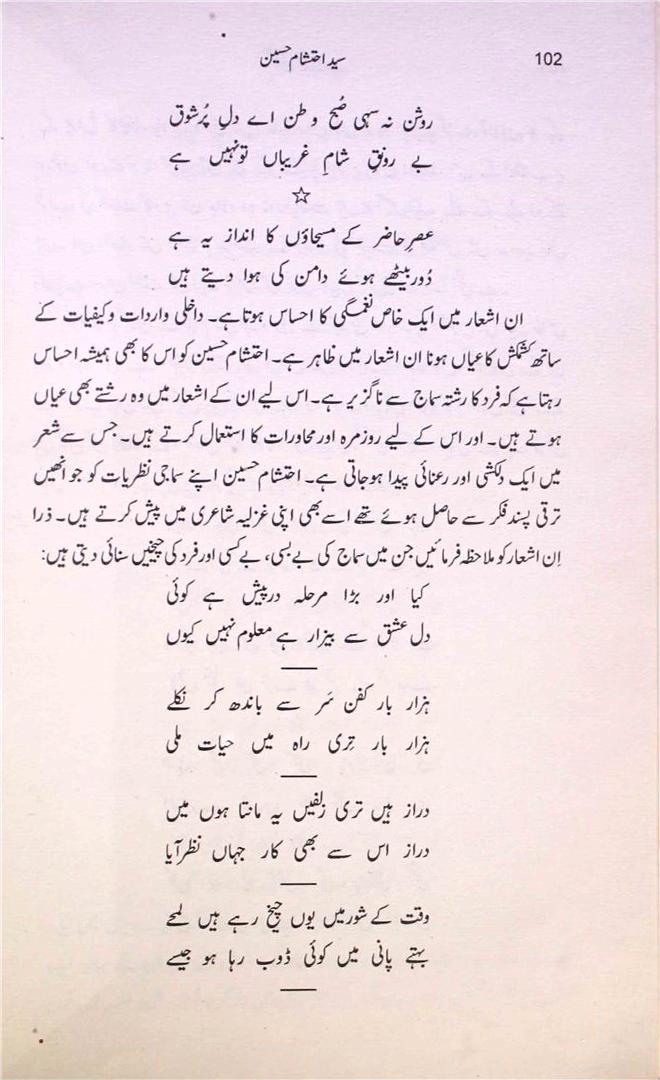 102
سید احتشام حسین
روشن نہ سہی صُبحِ وطن اے دلِ پُرشوق
بے رونقِ شامِ غریباں تو نہیں ہے
☆
عصرِ حاضر کے مسیحاؤں کا انداز یہ ہے
دُور بیٹھے ہوئے دامن کی ہوا دیتے ہیں
ان اشعار میں ایک خاص نغمگی کا احساس ہوتا ہے۔ داخلی واردات وکیفیات کے
ساتھ کشمکش کا عیاں ہونا ان اشعار میں ظاہر ہے۔ احتشام حسین کو اس کا بھی ہمیشہ احساس
رہتا ہے کہ فرد کا رشتہ سماج سے ناگزیر ہے۔ اس لیے ان کے اشعار میں وہ رشتے بھی عیاں
ہوتے ہیں۔ اور اس کے لیے روزمرہ اور محاورات کا استعمال کرتے ہیں۔ جس سے شعر
میں ایک دلکشی اور رعنائی پیدا ہوجاتی ہے۔ احتشام حسین اپنے سماجی نظریات کو جو انھیں
ترقی پسند فکر سے حاصل ہوئے تھے اسے بھی اپنی غزلیہ شاعری میں پیش کرتے ہیں۔ ذرا
اِن اشعار کو ملاحظہ فرمائیں جن میں سماج کی بے بسی، بے کسی اور فرد کی چیخیں سنائی دیتی ہیں:
کیا اور بڑا مرحلہ درپیش ہے کوئی
دل عشق سے بیزار ہے معلوم نہیں کیوں
ہزار بار کفن سَر سے باندھ کر نکلے
ہزار بار تِری راہ میں حیات ملی
دراز ہیں تری زلفیں یہ مانتا ہوں میں
دراز اس سے بھی کار جہاں نظر آیا
وقت کے شور میں یوں چیخ رہے ہیں لمحے
بہتے پانی میں کوئی ڈوب رہا ہو جیسے